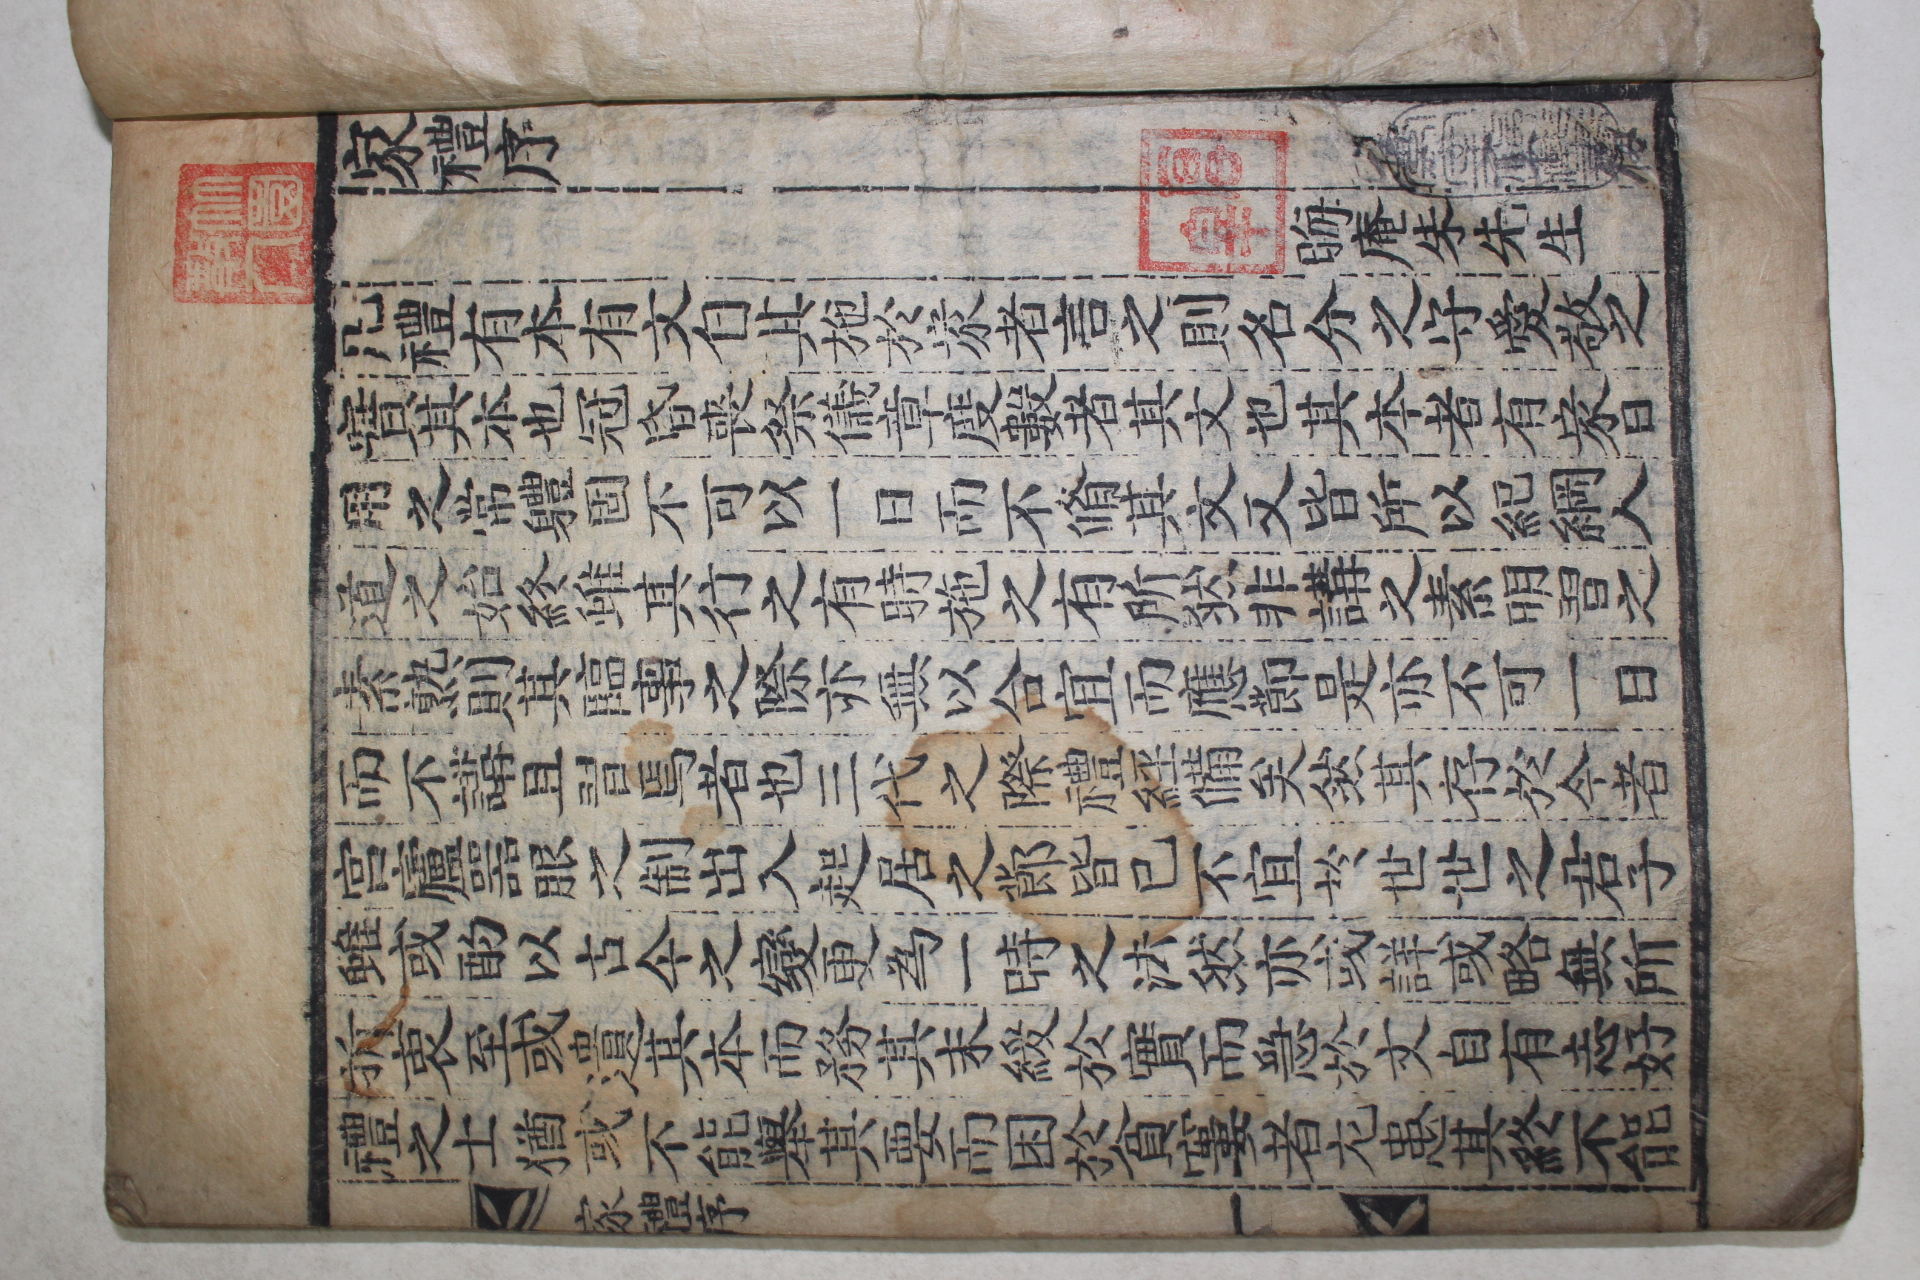 家禮序
晦庵朱先生
凡禮有本有文自其施於家者言之則名分之守愛敬之
實其本也冠昏喪祭儀章度數者其文也其本者有家日
用之常軆固不可以一日而不脩其文又皆所以紀綱人
道之始終雖其行之有時施之有所然非講之素明習之
素熟則其臨事之際亦無以合宜而應節是亦不可一日
而不講且習焉者也三代之際禮經備矣然其存於今者
宮廬器服之制出入起居之節皆已不宜於世世之君子
雖或酌以古今之變更爲一時之法然亦或詳或略無所
折衷至或遺其本而務其末緩於實而急於文自有志好
禮之士猶或不能擧其要而困於貧窶者尤患其終不能
家禮序
一